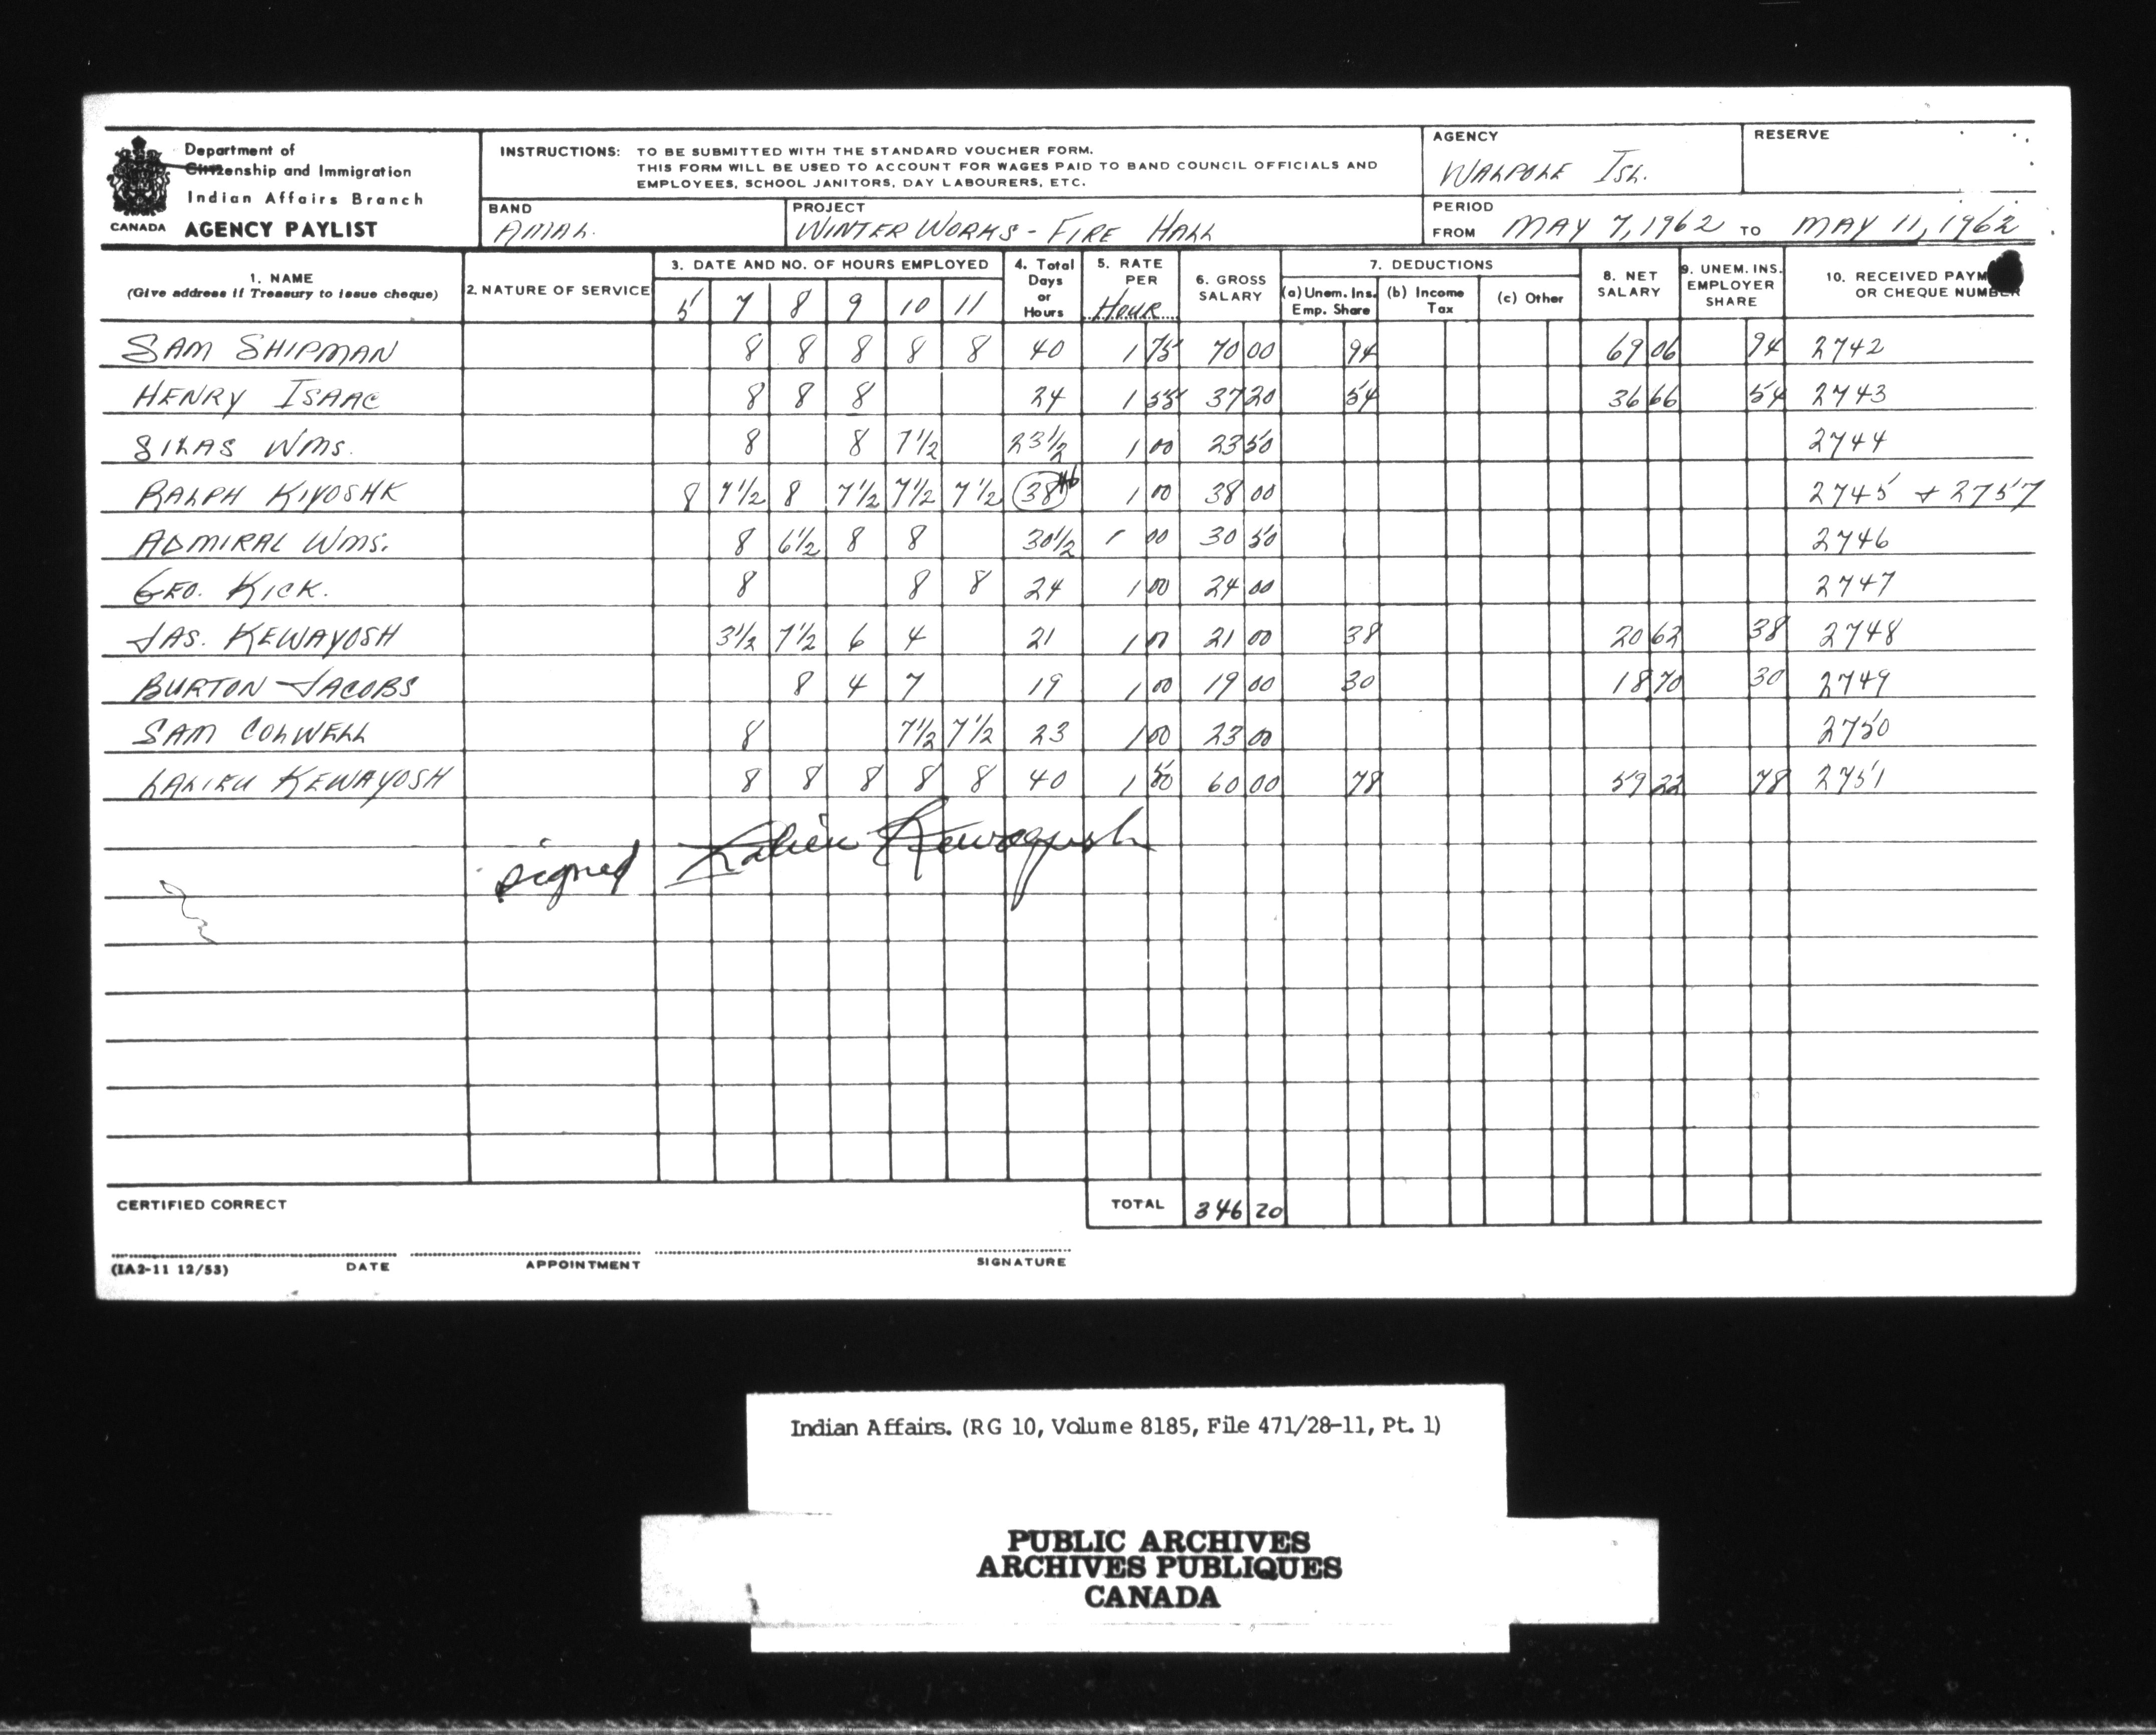 Department of
Citizenship and Immigration
Indian Affairs Branch
CANADA AGENCY PAYLIST
INSTRUCTIONS: TO BE SUBMITTED WITH THE STANDARD VOUCHER FORM.
THIS FORM WILL BE USED TO ACCOUNT FOR WAGES PAID TO BAND COUNCIL OFFICIALS AND
EMPLOYEES, SCHOOL JANITORS, DAY LABOURERS, ETC.
AGENCY
WALPOLE ISL.
RESERVE
BAND
AMAL.
PROJECT
WINTER WORKS - FIRE HALL
PERIOD
FROM MAY 7, 1962 TO MAY 11, 1962
1. NAME
(Give address if Treasury to issue cheque)
2. NATURE OF SERVICE
3. DATE AND NO. OF HOURS EMPLOYED
5 7 8 9 10 11
4. Total
Days
or
Hours
5. RATE
PER
HOUR
6. GROSS
SALARY
7. DEDUCTIONS
(a) Unem. Ins.
Emp. Share
(b) Income
Tax
(c) Other
8. NET
SALARY
9. UNEM. INS.
EMPLOYER
SHARE
10. RECEIVED PAYM
OR CHEQUE NUMBER
SAM SHIPMAN 8 8 8 8 8 40 1 75 70 00 94 69 06 94 2742
HENRY ISAAC 8 8 8 24 1 55 37 20 54 36 66 54 2743
SILAS WMS. 8 8 7 1/2 23 1/2 1 00 23 50 2744
RALPH KIYOSHK 8 7 1/2 8 7 1/2 7 1/2 7 1/2 38 46 1 00 38 00 2745 + 2757
ADMIRAL WMS. 8 6 1/2 8 8 30 1/2 1 00 30 50 2746
GEO. KICK. 8 8 8 24 1 00 24 00 2747
JAS. KEWAYOSH 3 1/2 7 1/2 6 4 21 1 00 21 00 38 20 62 38 2748
BURTON JACOBS 8 4 7 19 1 00 19 00 30 18 70 30 2749
SAM COLWELL 8 7 1/2 7 1/2 23 1 00 23 00 2750
LALIEU KEWAYOSH 8 8 8 8 8 40 1 50 60 00 78 59 22 78 2751
signed Lalieu Kewayosh
CERTIFIED CORRECT
TOTAL 346 20
(IA2-11 12/53) DATE APPOINTMENT SIGNATURE
Indian Affairs. (RG 10, Volume 8185, File 471/28-11, Pt. 1)
PUBLIC ARCHIVES
ARCHIVES PUBLIQUES
CANADA